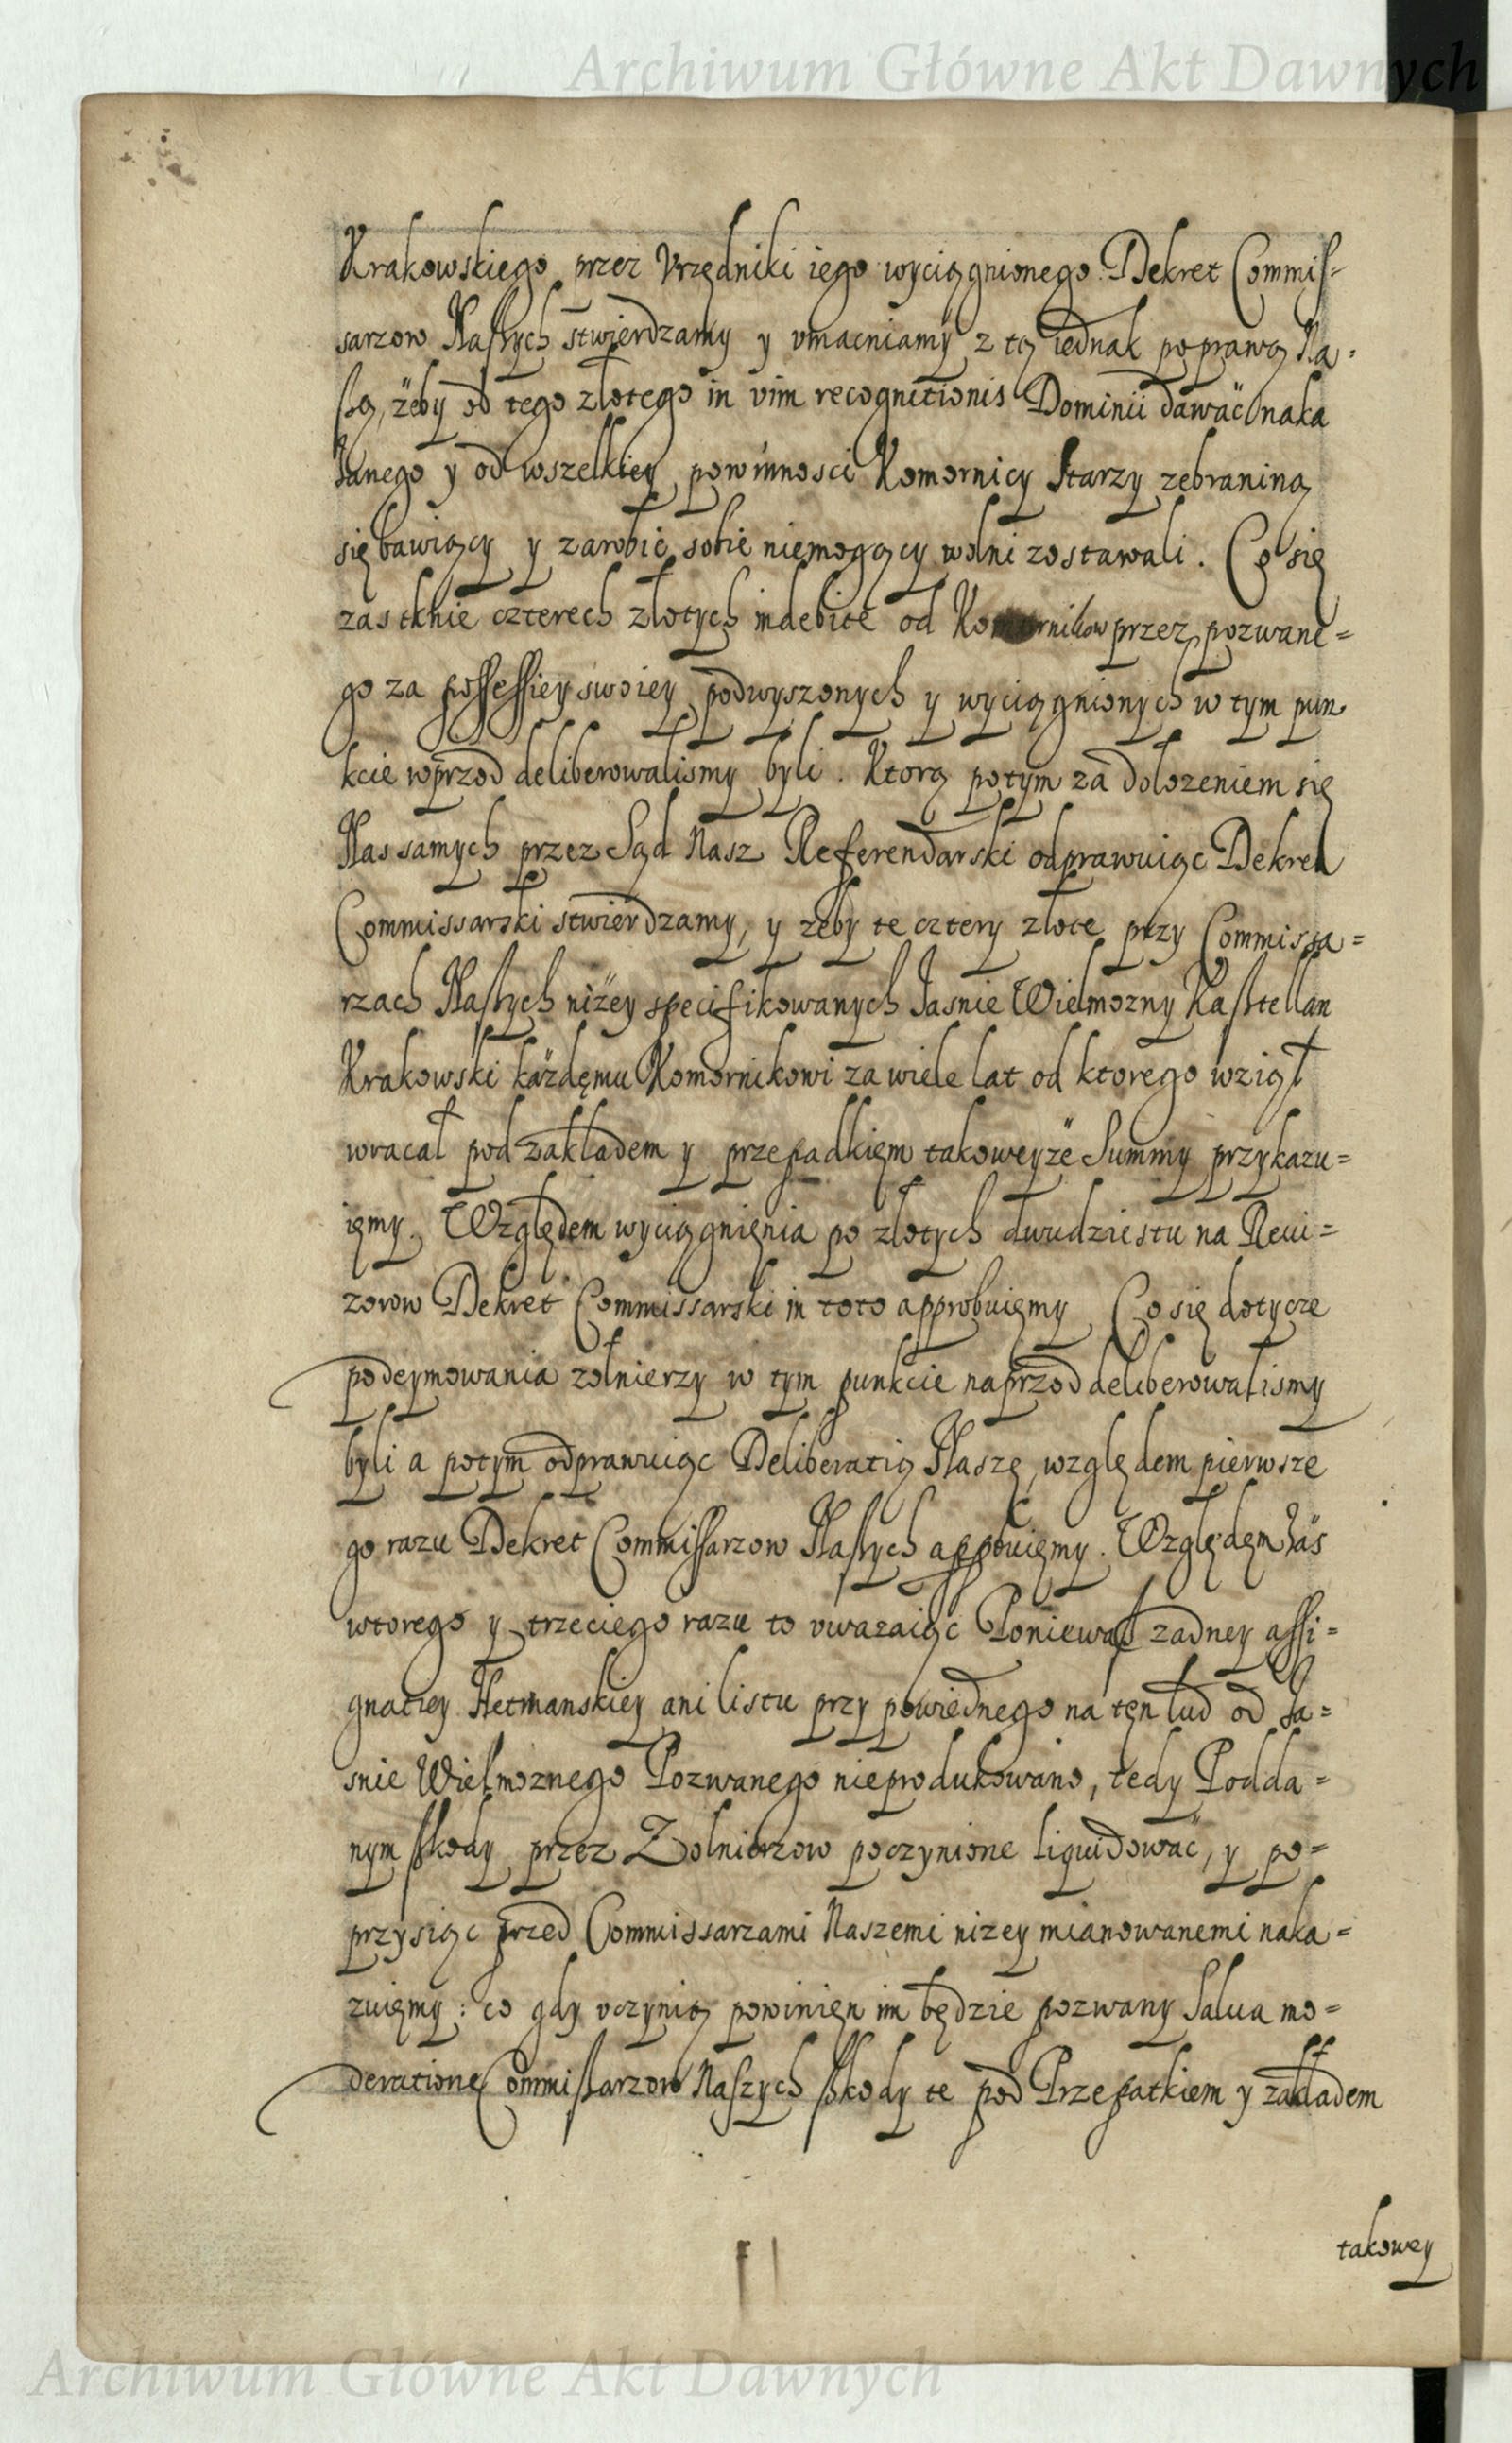 Archiwum Główne Akt Dawnych
Krakowskiego przez Vrzędniki iego wyciągnionego Dekret Commis=
sarzow Naszych stwierdzamy y vmacniamy z tą iednak poprawą Na=
szą, żeby od tego złotego in vim recognitionis Dominii dawać naka
zanego y od wszelkiey powinnosci Komornicy starzy zebraniną
się bawiący y zarobic sobie niemogący wolni zostawali. Co się
zas tknie czterech złotych indebite od Komornikow przez pozwane=
go za possessiey swoiey podwyszonych y wyciągnionych w tym pun
kcie wprzod deliberowalismy byli. Ktorą potym za dołozeniem się
Nas samych przez Sąd Nasz Referendarski odprawuiąc Dekret
Commissarski stwierdzamy, y zeby te cztery złote przy Commissa=
rzach Naszych niżey specifikowanych Jasnie Wielmozny Kasztellan
Krakowski każdęmu Komornikowi za wiele lat od ktorego wziął
wracał pod zakładem y przepadkięm takoweyże Summy przykazu=
ięmy. Względem wyciągnięnia po złotych dwudziestu na Rewi=
zorow Dekret Commissarski in toto approbuięmy Co się dotycze
podeymowania zołnierzy w tym punkcie naprzod deliberowalismy
byli a potym odprawuiąc Deliberatią Naszę względem pierwsze
go razu Dekret Commissarzow Naszych appbuięmy. Względęm zaś
wtorego y trzeciego razu to vwazaiąc Poniewasz zadney assi=
gnatiey Hetmanskiey ani listu przypowiednego na tęn lud od Ja=
snie Wielmoznego Pozwanego nieprodukowano, tedy Podda=
nym szkody przez Zołnierzow poczynione liquidować, y po=
przysiąc przed Commissarzami Naszemi nizey mianowanemi naka=
zuięmy: co gdy vczynią powinięn im będzie pozwany Salua mo=
deratione Commissarzow Naszych szkody te pod Przepatkiem y zakładem
takowey
Archiwum Główne Akt Dawnych